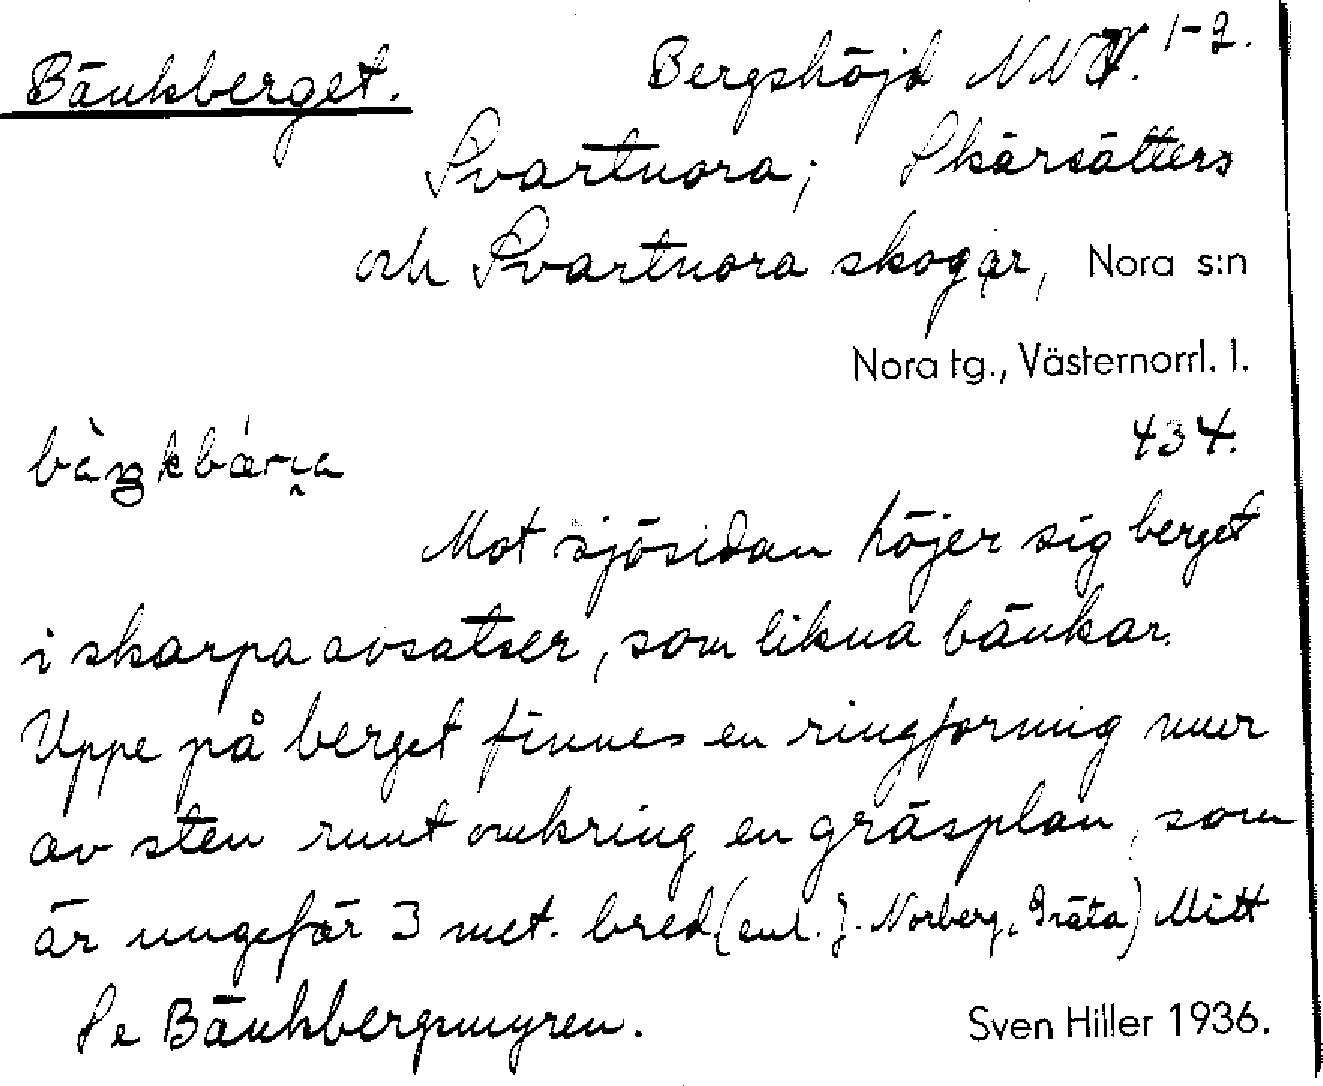 Bänkberget. Bergshöjd NNV. 1-2.
Svartnora; Skärsätters
och Svartnora skogar, Nora s:n
Nora tg., Västernorrl. l.
434.
bàŋkbǽrɪ̯a
Mot sjösidan höjer sig berget
i skarpa avsatser, som likna bänkar.
Uppe på berget finnes en ringformig mur
av sten runt omkring en gräsplan, som
är ungefär 3 met. bred (enl. J. Norberg, Gräta) Mitt
Se Bänkbergsmyren. Sven Hiller 1936.